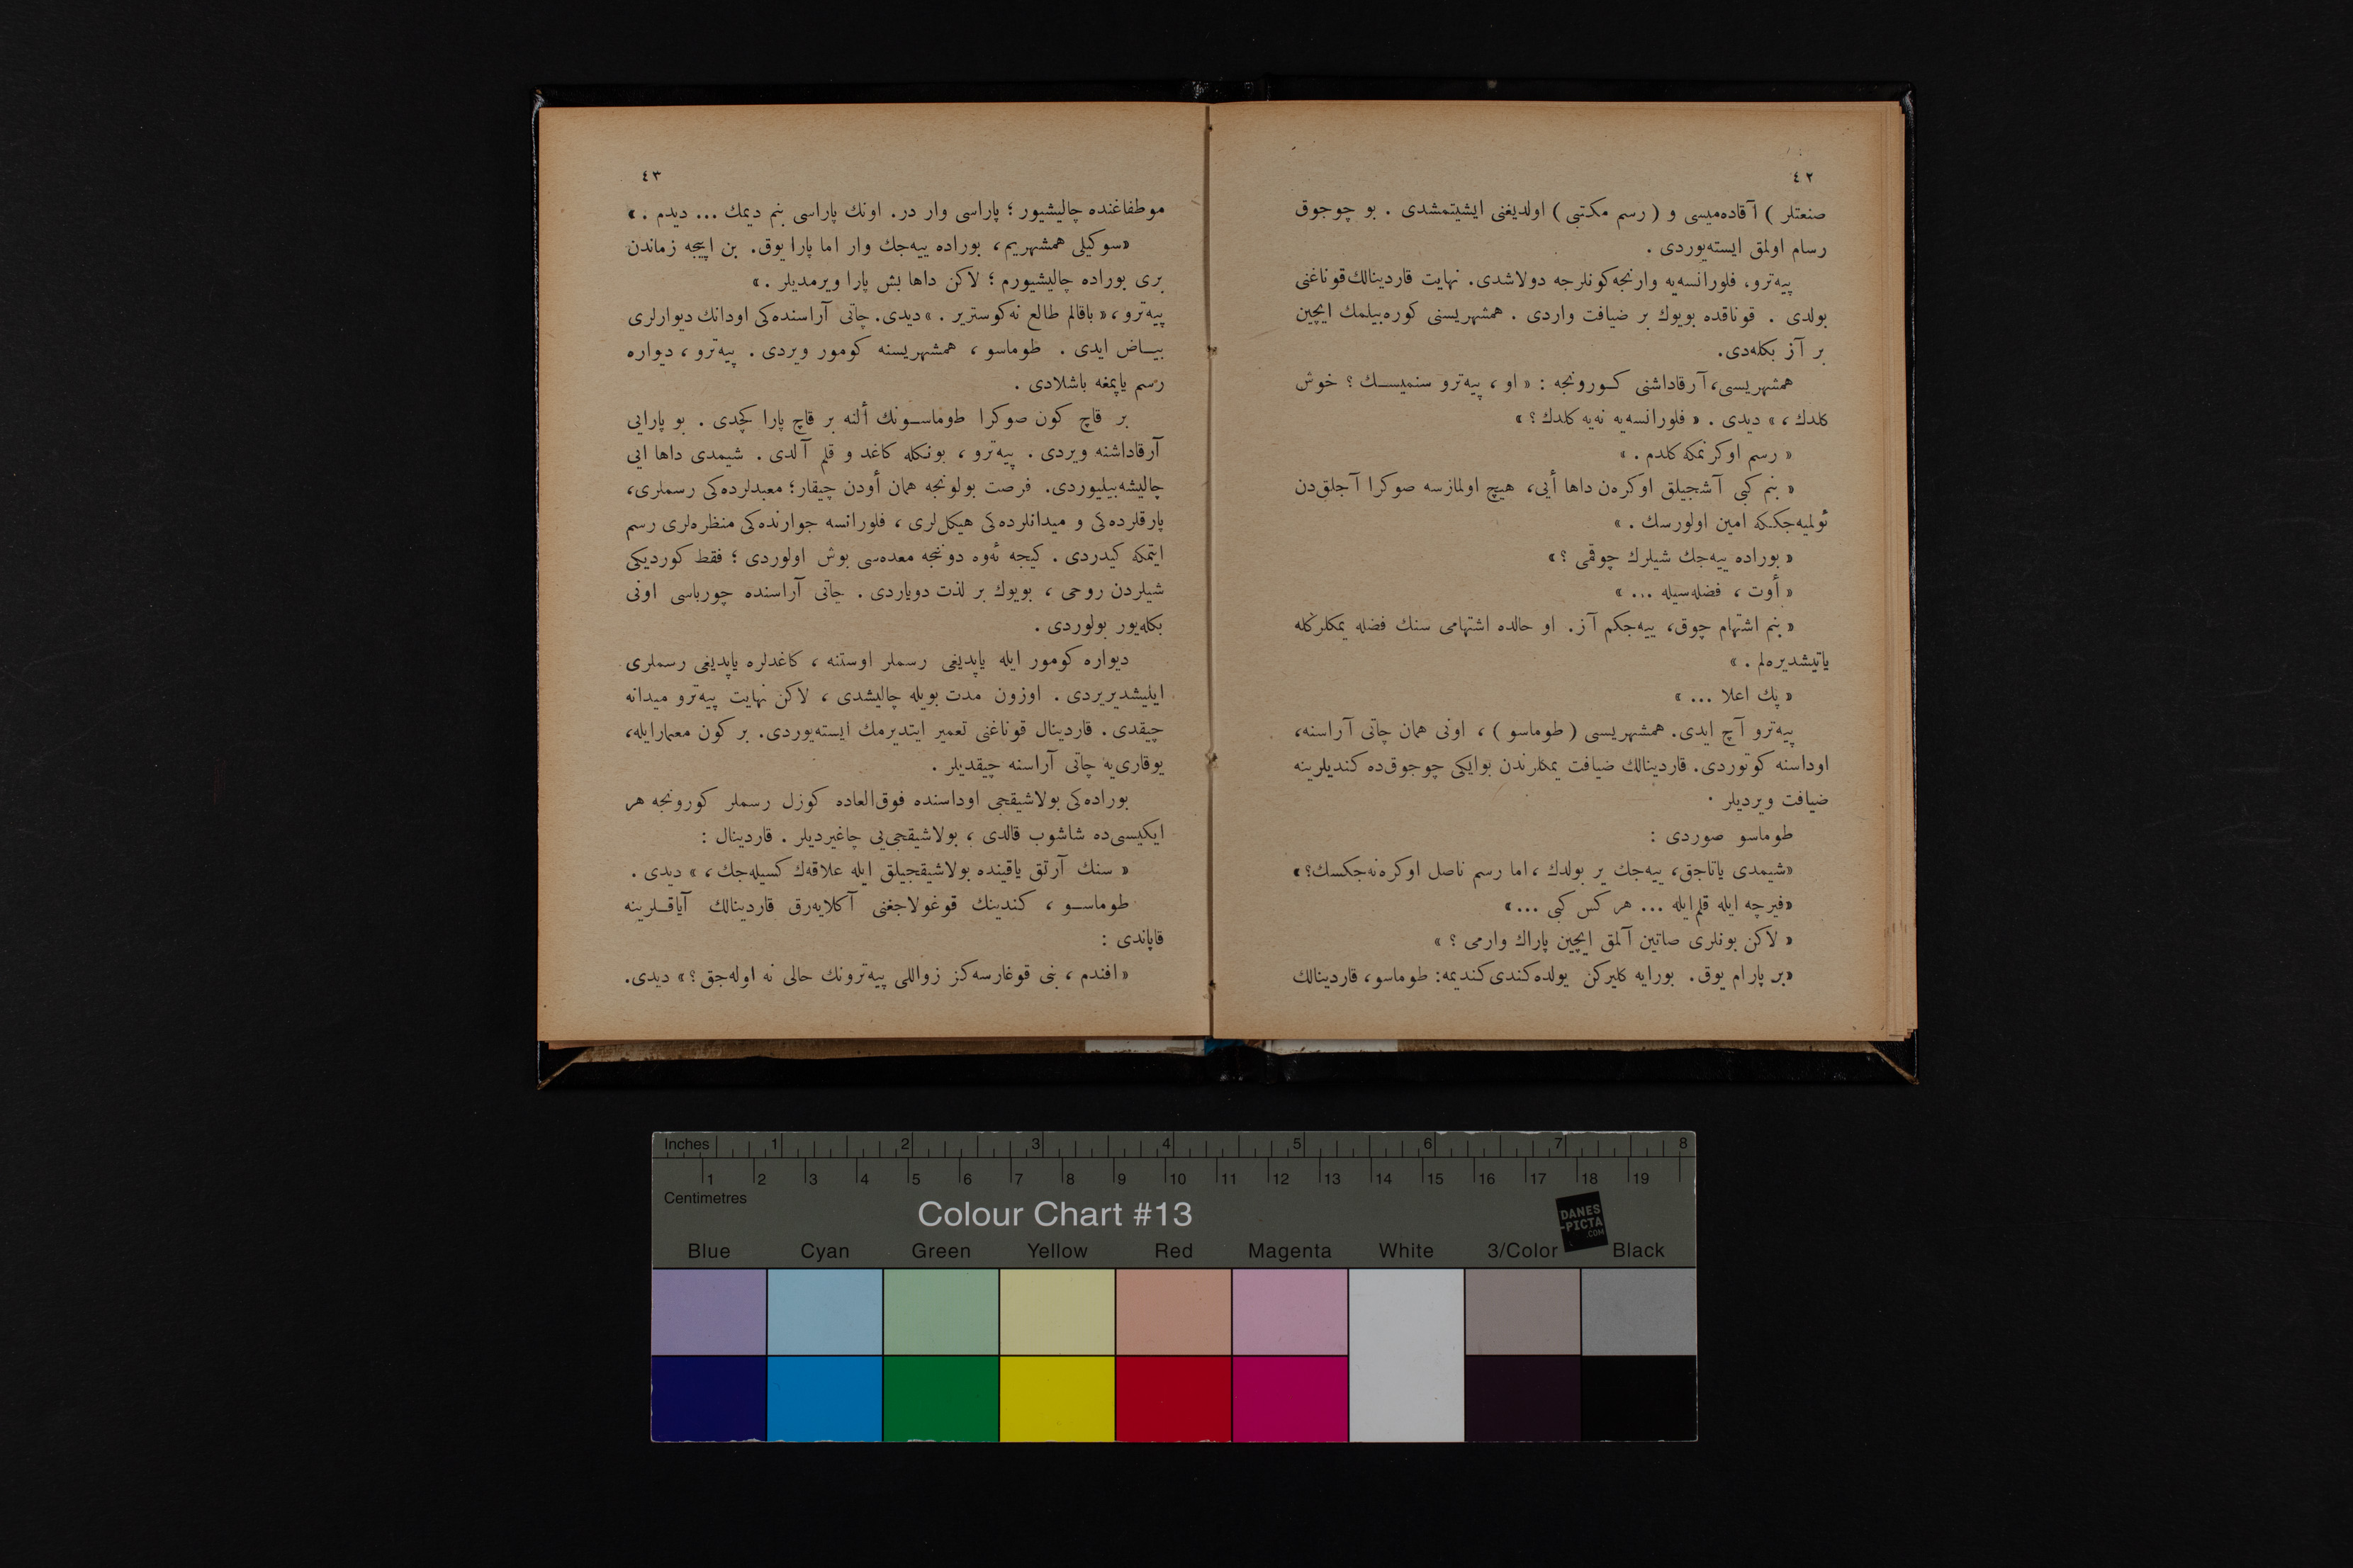 ٤٢
صنعتلر ) آقاده‌میسی و ( رسم مکتبی ) اولدیغنی ایشیتمشدی . بو چوجوق
رسام اولمق ایسته‌یوردی .
پیه‌ترو، فلورانسه‌یه وارنجه کونلرجه دولاشدی. نهایت قاردینالك قوناغنی
بولدی . قوناقده بویوك بر ضیافت واردی . همشهریسنی کوره‌بیلمك ایچین
بر آز بکله‌دی.
همشهریسی، آرقاداشنی کـورونجه : « او ، پیه‌ترو سنمیسـك ؟ خوش
کلدك ، » دیدی . « فلورانسه‌یه نه‌یه کلدك ؟ »
« رسم اوکرنمکه کلدم . »
« بنم کبی آشجیلق اوکره‌ن داها أیی، هیچ اولمازسه صوکرا آجلق‌دن
ئولمیه‌جککه امین اولورسك . »
« بوراده ییه‌جك شیلرك چوقمی ؟ »
« أوت ، فضله‌سیله ... »
« بنم اشتهام چوق، ییه‌جکم آز. او حالده اشتهامی سنك فضله یمکلرکله
یاتیشدیره‌لم . »
« پك اعلا ... »
پیه‌ترو آچ ایدی. همشهریسی ( طوماسو ) ، اونی همان چاتی آراسنه،
اوداسنه کوتوردی. قاردینالك ضیافت یمکلرندن بوایکی چوجوق‌ده کندیلرینه
ضیافت ویردیلر .
طوماسو صوردی :
«شیمدی یاتاجق، ییه‌جك یر بولدك ، اما رسم ناصل اوکره‌نه‌جکسك؟ »
«فیرچه ایله قلم‌ایله ... هر کس کبی ... »
« لاکن بونلری صاتین آلمق ایچین پاراك وارمی ؟ »
«بر پارام یوق. بورایه کلیرکن یولده کندی کندیمه: طوماسو، قاردینالك
٤٣
موطفاغنده چالیشیور ؛ پاراسی وار در. اونك پاراسی بنم دیمك ... دیدم . »
«سوکیلی همشهریم، بوراده ییه‌جك وار اما پارا یوق. بن اپیجه زماندن
بری بوراده چالیشیورم ؛ لاکن داها بش پارا ویرمدیلر . »
پیه‌ترو ، « باقالم طالع نه کوستریر . » دیدی. چاتی آراسنده‌کی اودانك دیوارلری
بیـاض ایدی . طوماسو ، همشهریسنه کومور ویردی . پیه‌ترو ، دیواره
رسم یاپمغه باشلادی .
بر قاچ کون صوکرا طوماسـونك ألنه بر قاچ پارا کچدی . بو پارایی
آرقاداشنه ویردی . پیه‌ترو ، بونکله کاغد و قلم آلدی . شیمدی داها ایی
چالیشه‌بیلیوردی. فرصت بولونجه همان أودن چیقار؛ معبدلرده‌کی رسملری،
پارقلرده‌کی و میدانلرده‌کی هیکل‌لری ، فلورانسه جوارنده‌کی منظره‌لری رسم
ایتمکه کیدردی . کیجه ئه‌وه دوننجه معده‌سی بوش اولوردی ؛ فقط کوردیکی
شیلردن روحی ، بویوك بر لذت دویاردی . چاتی آراسنده چورباسی اونی
بکله‌یور بولوردی .
دیواره کومور ایله یاپدیغی رسملر اوستنه ، کاغدلره یاپدیغی رسملری
ایلیشدیریردی . اوزون مدت بویله چالیشدی ، لاکن نهایت پیه‌ترو میدانه
چیقدی . قاردینال قوناغنی تعمیر ایتدیرمك ایسته‌یوردی. بر کون معمارایله،
یوقاری‌یه چاتی آراسنه چیقدیلر .
بوراده‌کی بولاشیقجی اوداسنده فوق‌العاده کوزل رسملر کورونجه هر
ایکیسی‌ده شاشوب قالدی ، بولاشیقجی‌یی چاغیردیلر . قاردینال :
« سنك آرتق یاقینده بولاشیقجیلق ایله علاقه‌ك کسیله‌جك ، » دیدی .
طوماسـو ، کندینك قوغولاجغنی آکلایه‌رق قاردینالك آیاقـلرینه
قاپاندی :
« افندم ، بنی قوغارسه‌کز زواللی پیه‌ترونك حالی نه اوله‌جق ؟ » دیدی.
Inches 1 2 3 4 5 6 7 8
1 2 3 4 5 6 7 8 9 10 11 12 13 14 15 16 17 18 19
Centimetres
Colour Chart #13
DANES
-PICTA
.COM
Blue Cyan Green Yellow Red Magenta White 3/Color Black